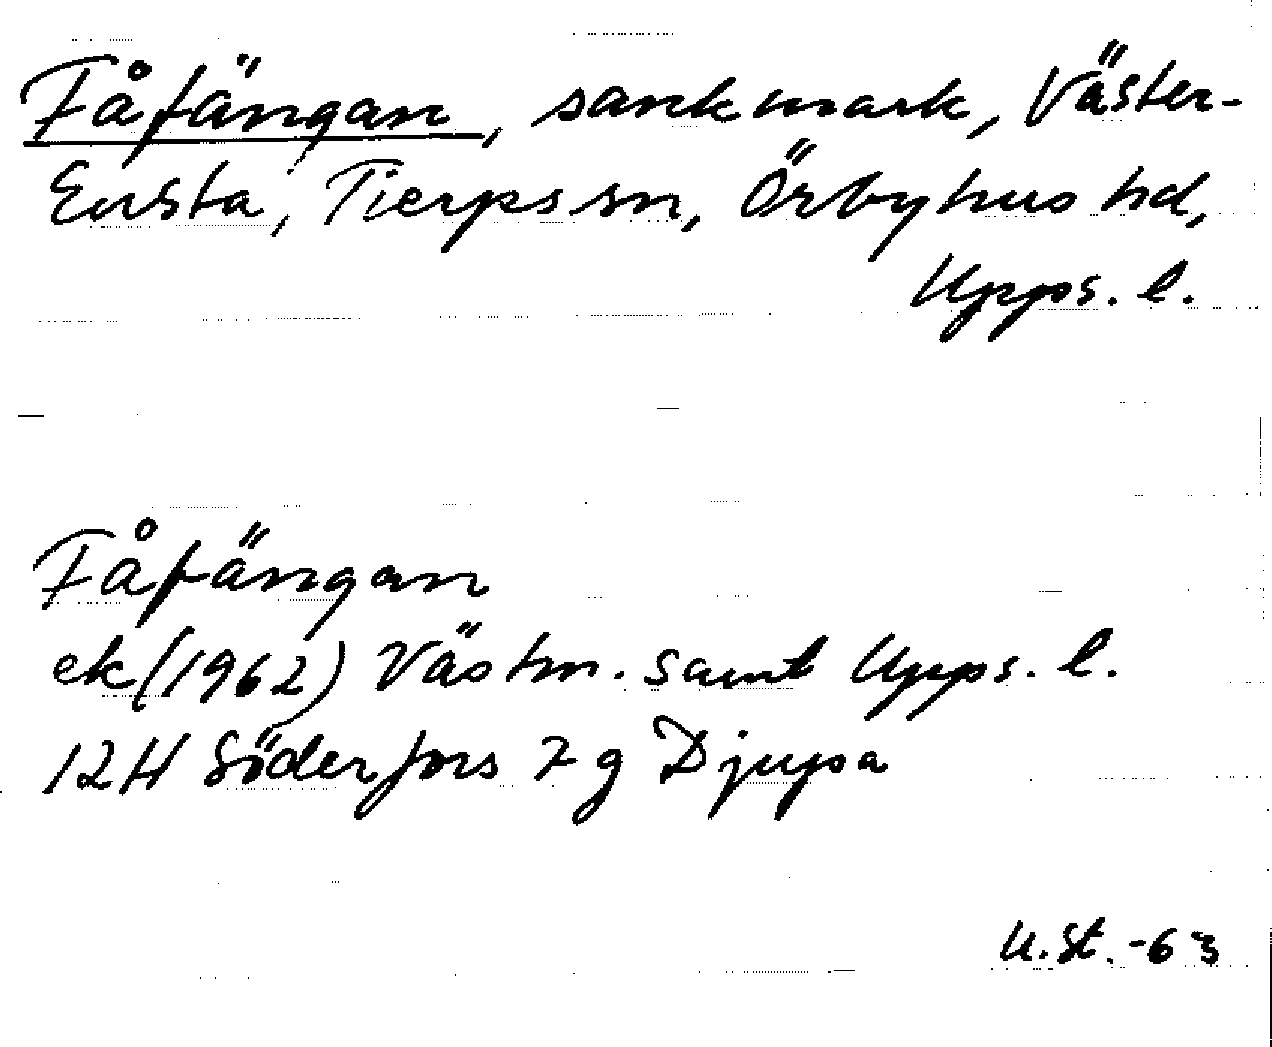 Fåfängan, sankmark, Väster-
Ensta, Tierps sn, Örbyhus hd,
Upps. l.
Fåfängan
ek (1962) Västm. samt Upps. l.
12H Söderfors 7 g Djupa
U.St. -63